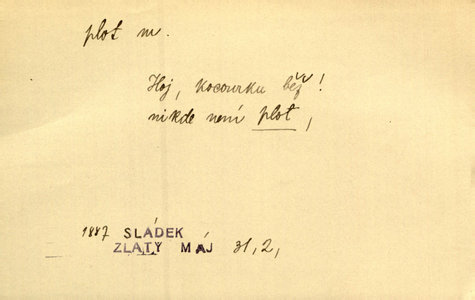 plot m.
Hoj, kocourku běž!
nikde není plot,
1887 SLÁDEK
ZLATÝ MÁJ 31,2,